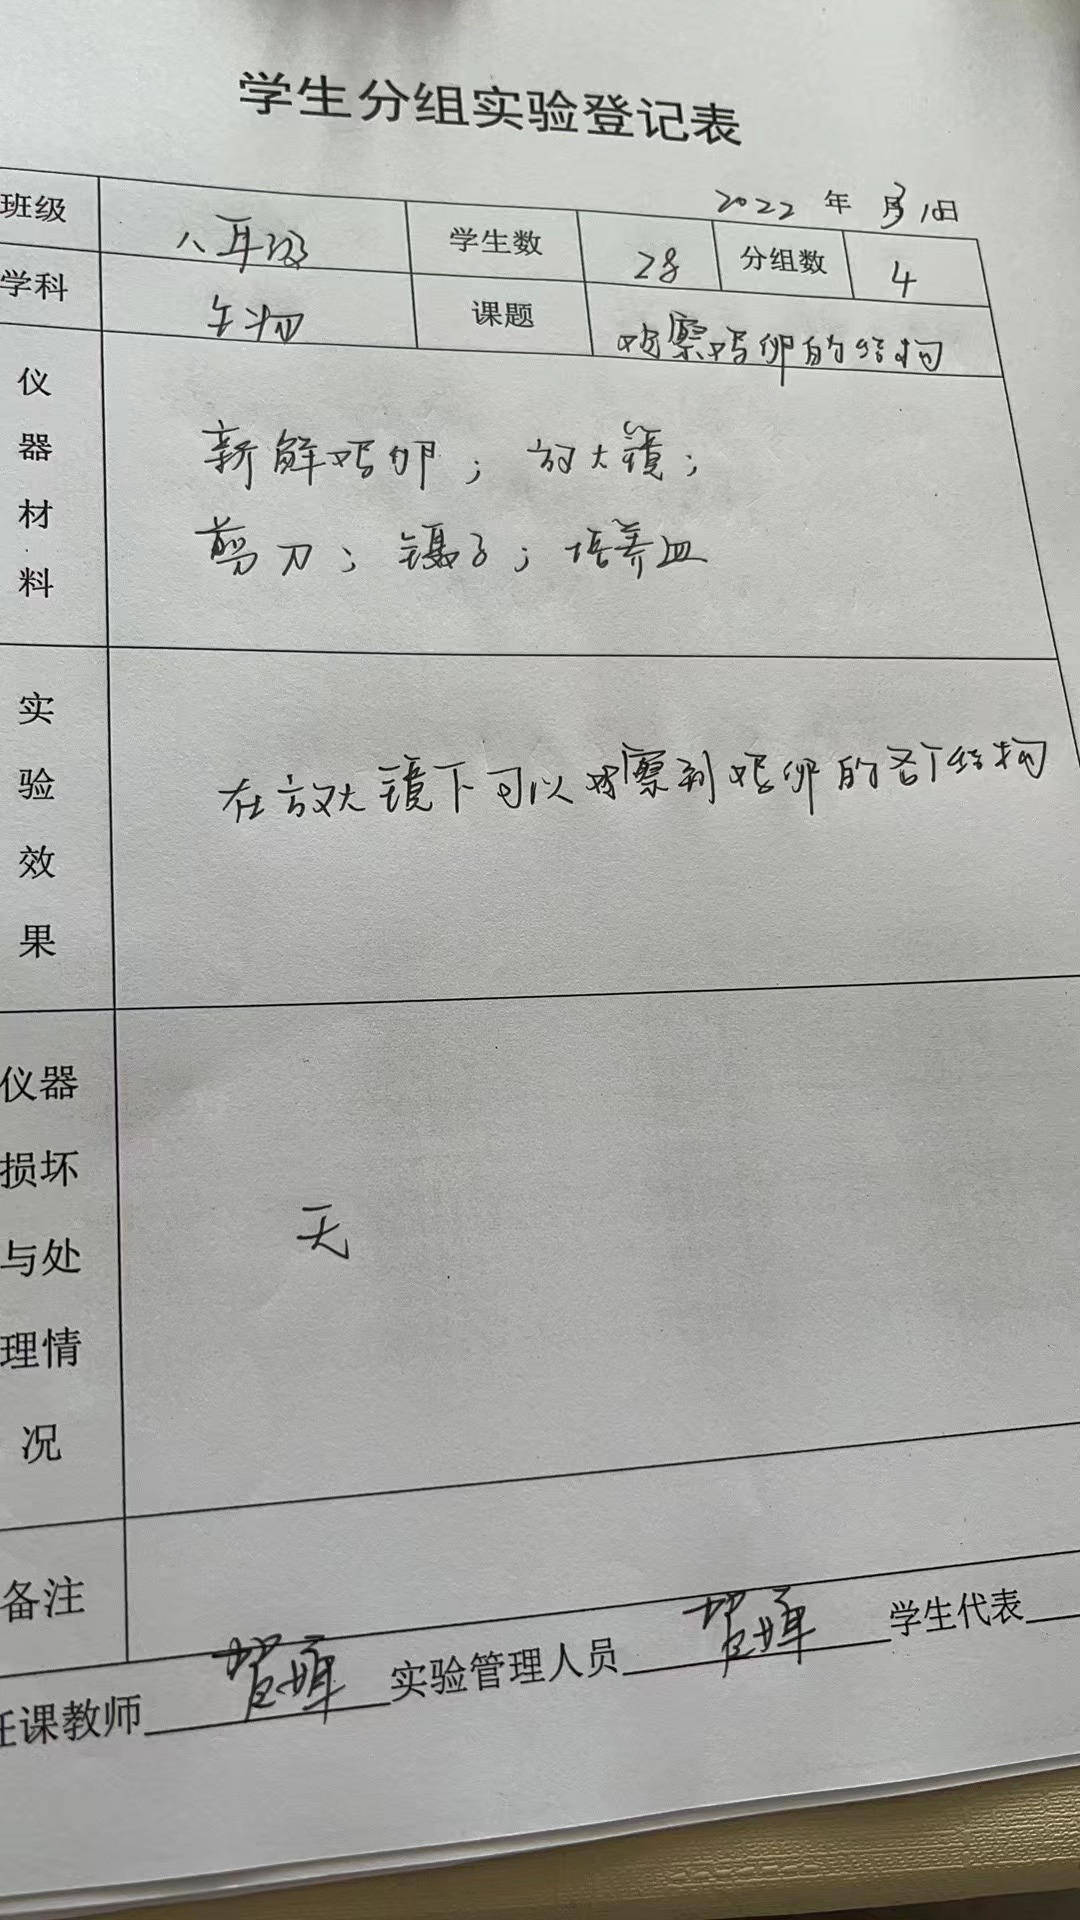 学生分组实验登记表
2022 年 3月1日
班级 八年级 学生数 28 分组数 4
学科 生物 课题 观察鸡卵的结构
仪器材料
新鲜鸡卵；放大镜；
剪刀；镊子；培养皿
实验效果
在放大镜下可以观察到鸡卵的各个结构
仪器损坏与处理情况
无
备注
任课教师 实验管理人员 学生代表